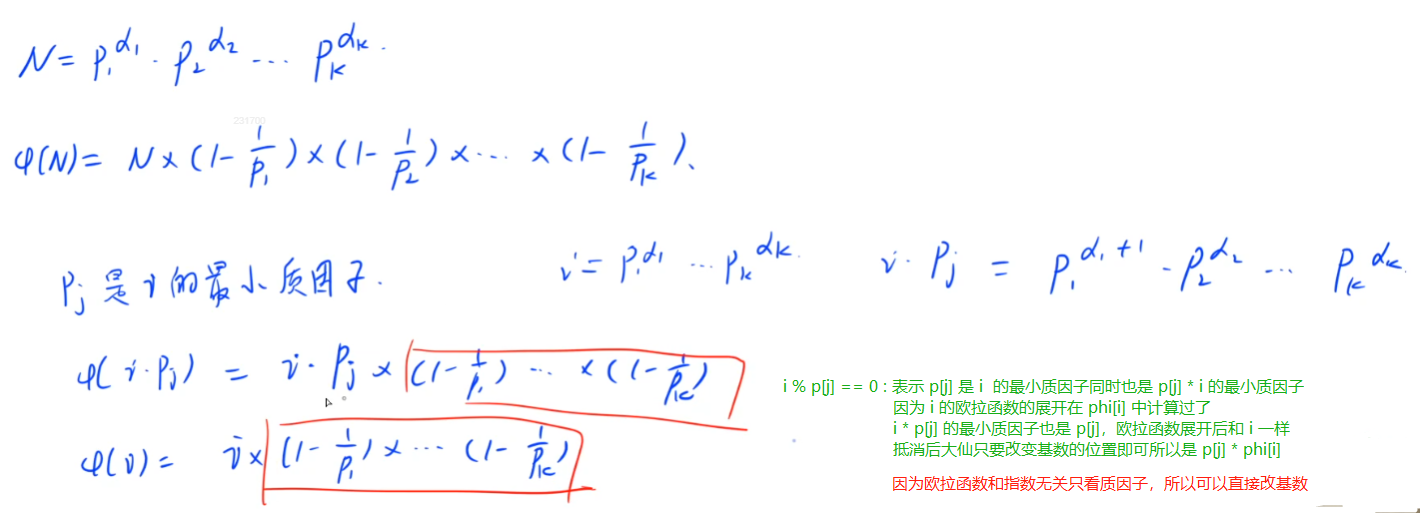 N = P₁^α₁ · P₂^α₂ ··· Pₖ^αₖ.
231700
φ(N) = N × (1 - 1/P₁) × (1 - 1/P₂) × ··· × (1 - 1/Pₖ).
Pⱼ 是 i 的最小质因子.
i = P₁^α₁ ··· Pₖ^αₖ.
i · Pⱼ = P₁^(α₁+1) · P₂^α₂ ··· Pₖ^αₖ.
φ(i·Pⱼ) = i · Pⱼ × (1 - 1/P₁) ··· × (1 - 1/Pₖ)
φ(i) = i × (1 - 1/P₁) × ··· (1 - 1/Pₖ)
i % p[j] == 0 : 表示 p[j] 是 i 的最小质因子同时也是 p[j] * i 的最小质因子
因为 i 的欧拉函数的展开在 phi[i] 中计算过了
i * p[j] 的最小质因子也是 p[j]，欧拉函数展开后和 i 一样
抵消后大仙只要改变基数的位置即可所以是 p[j] * phi[i]
因为欧拉函数和指数无关只看质因子，所以可以直接改基数